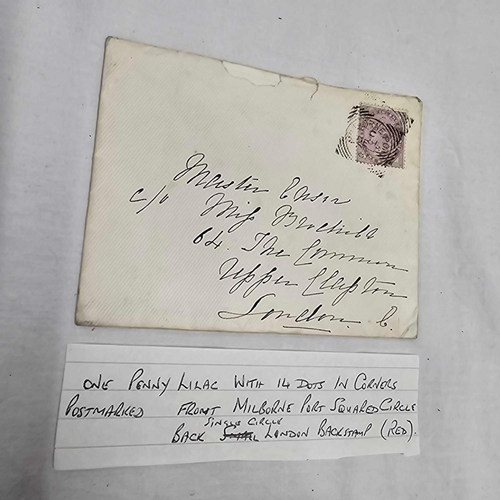 Master Ensor
c/o Miss
64. The Common
Upper Clapton
London.
ONE PENNY LILAC WITH 14 DOTS IN CORNERS
POSTMARKED FRONT MILBORNE PORT SQUARED CIRCLE
SINGLE CIRCLE
BACK LONDON BACKSTAMP (RED).